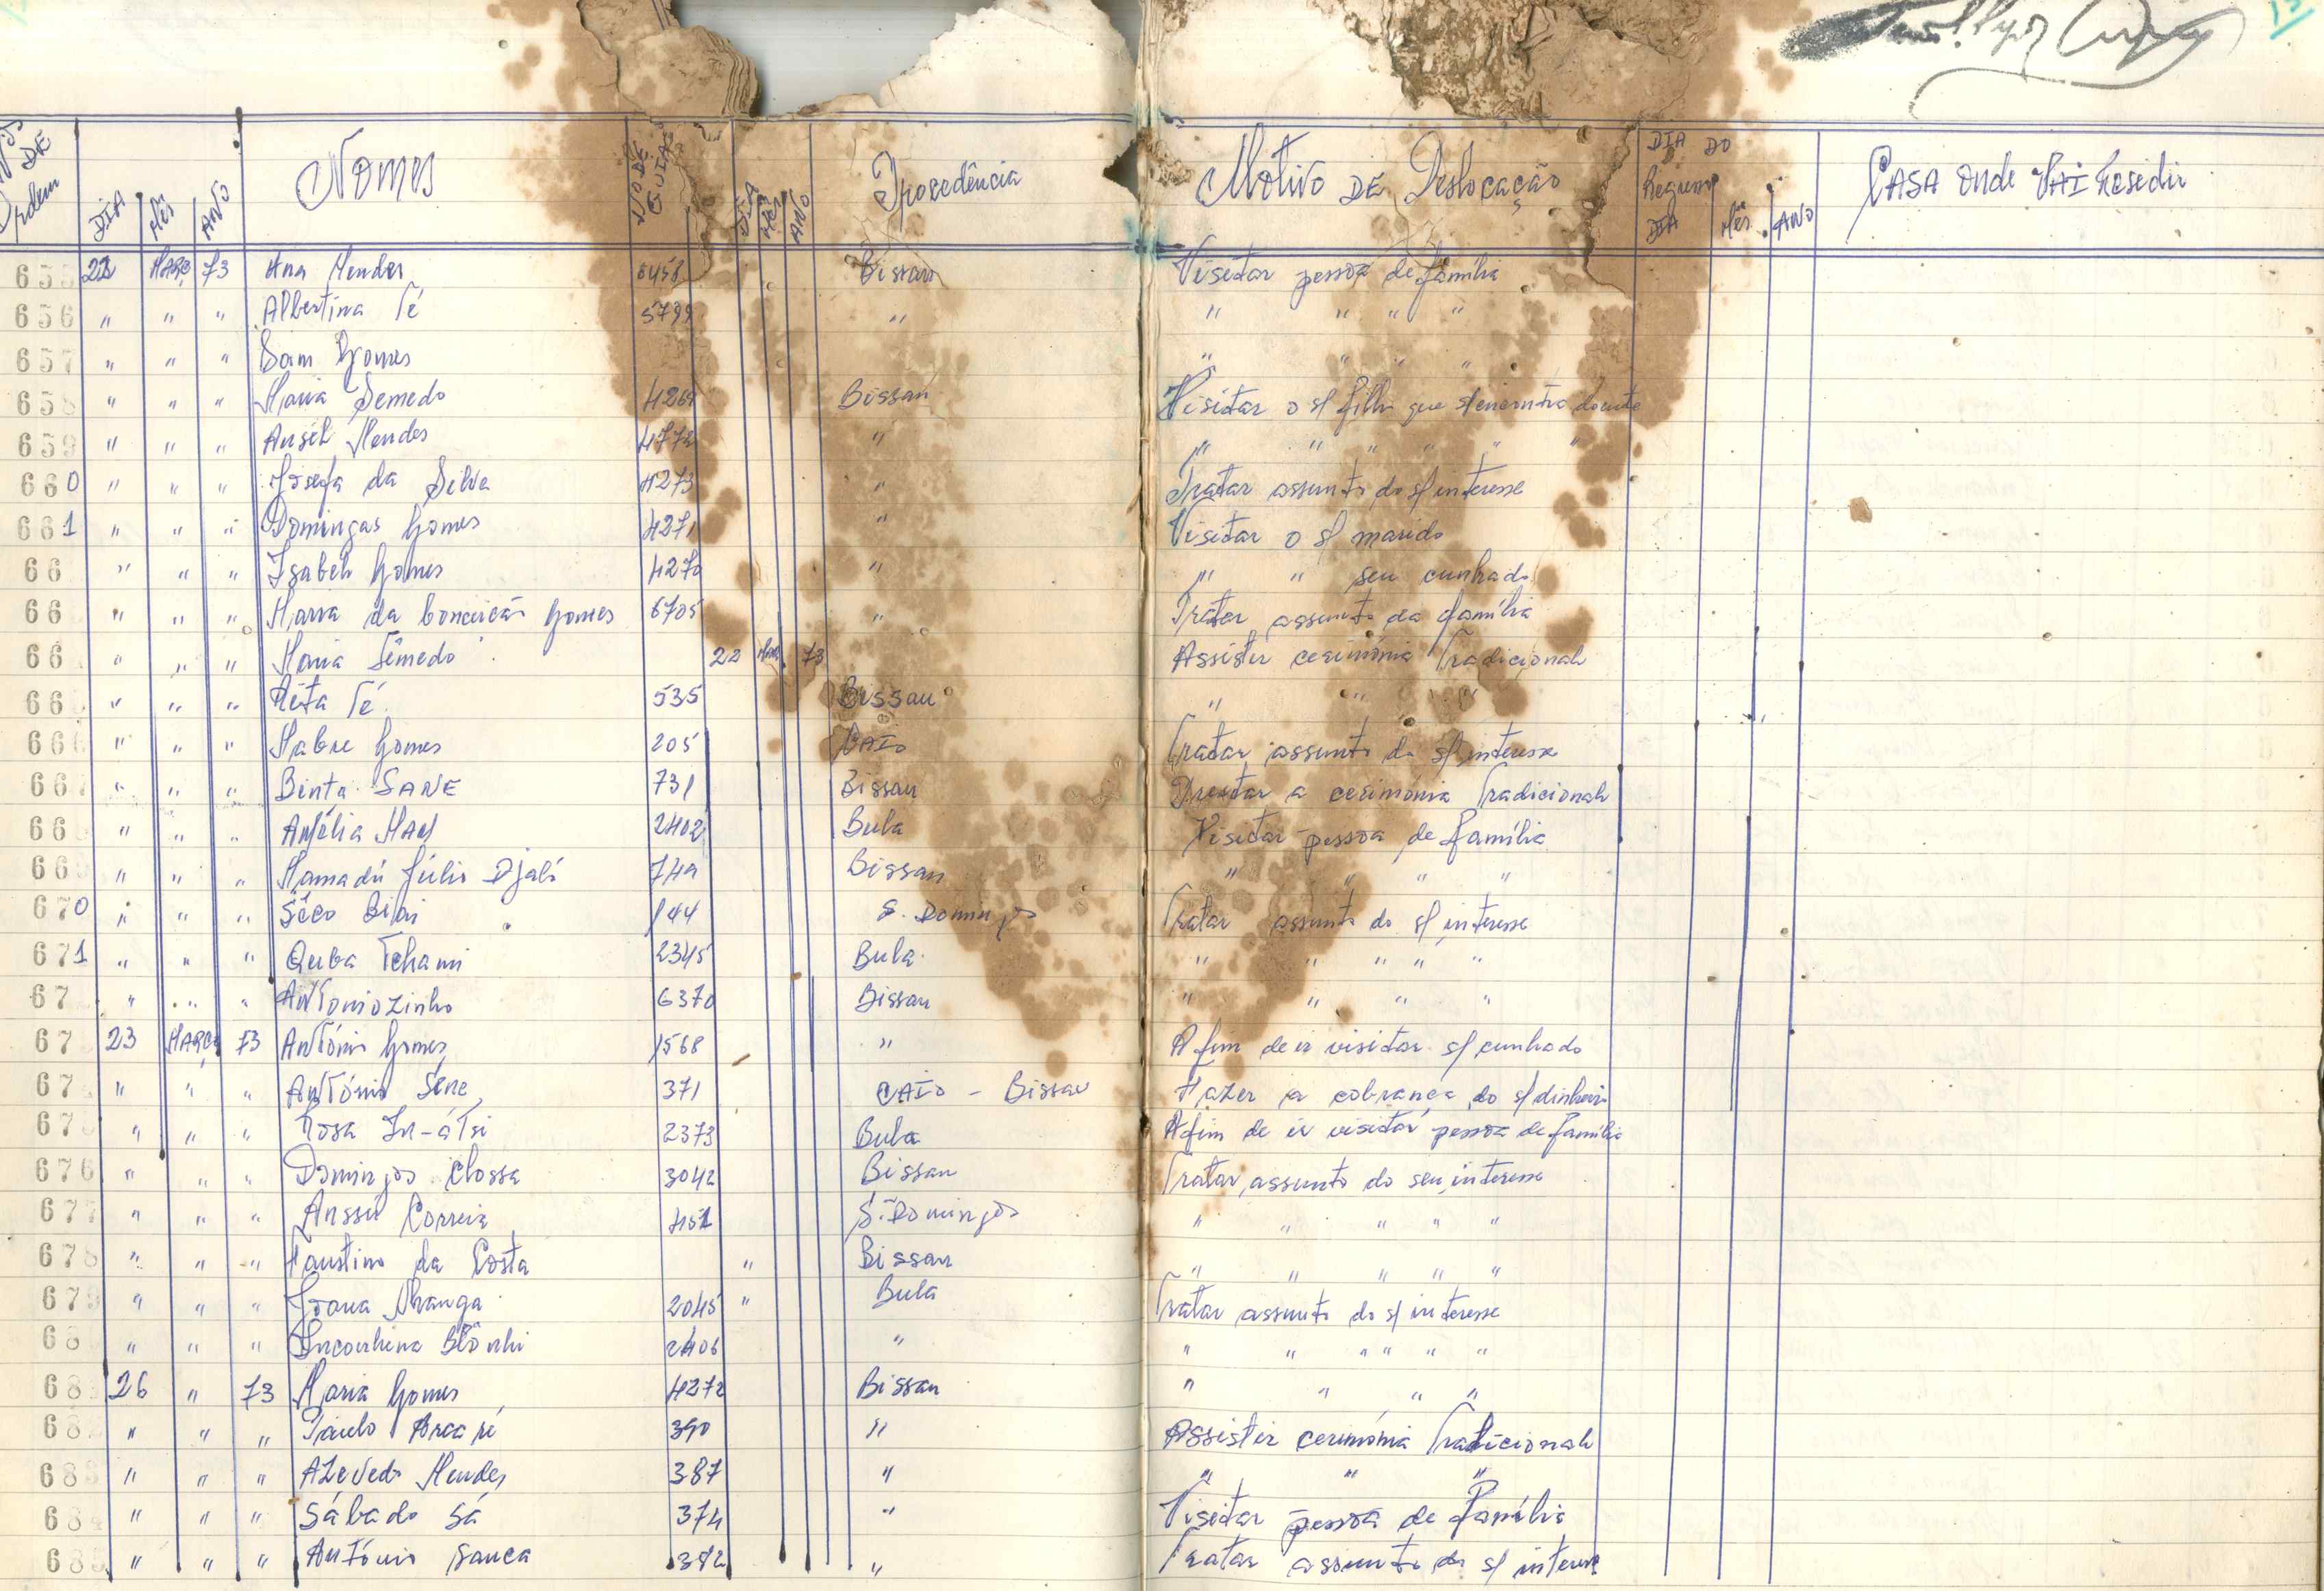 Nos DE Ordem DIA Mês ANO Nomes No DE GUIAS DIA Mês ANO Procedência Motivo DE Deslocação DIA DO Regresso DIA Mês ANO CASA Onde VAI Residir
22 MARÇ 73 Ana Mendes Bissau Visitar pessoa de família
656 " " " Albertina Té 5799 " " " " "
657 " " " Gomes " " " "
658 " " " Maria Semedo 4269 Bissau Visitar o s/ filho que s/encontra doente
659 " " " Mendes 4772 " " " " " " "
660 " " " Josefa da Silva 4273 " Tratar assunto do s/ interesse
661 " " " Domingas Gomes 4271 " Visitar o s/ marido
66 " " " Isabel Gomes 4270 " " " seu cunhado
66 " " " Maria da Conceição Gomes 6705 " Tratar assunto da família
66 " " " Maria Sêmedo 22 Mar. 73 Assistir cerimónia Tradicional
66 " " " Rita Té 535 Bissau " " "
666 " " " Gomes 205 CAIO Tratar assunto do s/ interesse
667 " " " Binta SANE 731 Bissau Prestar a cerimónia Tradicional
66 " " " Amélia 2402 Bula Visitar pessoa de família
66 " " " Mamadú Júlio Djaló 749 Bissau " " " "
670 " " " 144 S. Domingos Tratar assunto do s/ interesse
671 " " " Quba 2345 Bula " " " " "
67 " " " Antoniozinho 6370 Bissau " " " "
67 23 MARÇO 73 António Gomes 1568 " Afim de ir visitar s/ cunhado
67 " " " António Sene 371 CAIO - Bissau Fazer a cobrança do s/ dinheiro
67 " " " Rosa 2373 Bula Afim de ir visitar pessoa de família
676 " " " Domingos 3042 Bissau Tratar assunto do seu interesse
677 " " " Anssú Correia 451 S. Domingos " " " " "
678 " " " Faustino da Costa " Bissau " " " " "
679 " " " Joana Nhanga 2045 " Bula Tratar assunto do s/ interesse
68 " " " 2406 " " " " " " "
68 26 " 73 Maria Gomes 4272 Bissau " " " "
68 " " " Paulo 390 " Assistir cerimónia Tradicional
68 " " " AZeVedo Mendes 387 " " " "
684 " " " Sábado Sá 374 " Visitar pessoa de Família
68 " " " António Sanca 382 " Tratar assunto do s/ interesse